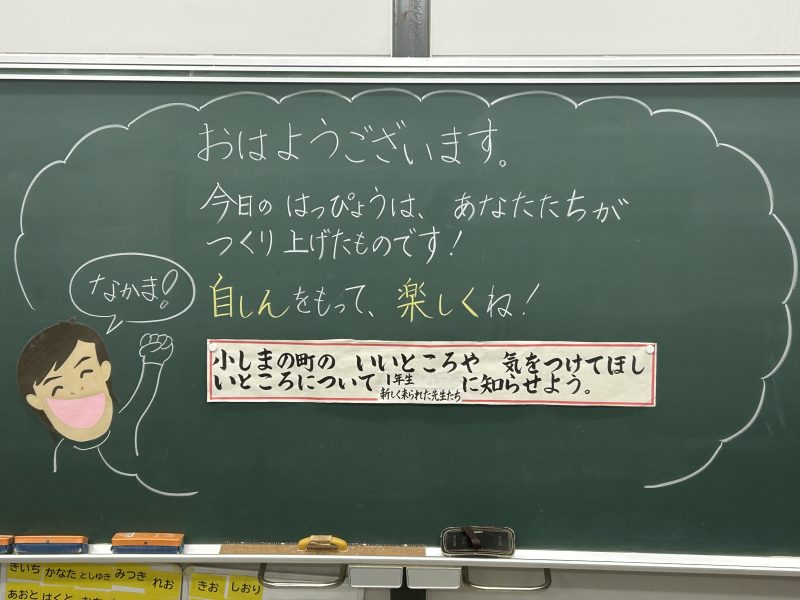 おはようございます。
今日の はっぴょうは、 あなたたちが
つくり上げたものです！
自しんをもって、楽しくね！
なかま！
小しまの町の いいところや 気をつけてほし
いところについて 1年生 新しく来られた先生たち に知らせよう。
きいち かなた としゆき みつき れお
あおと はくと
きお しおり